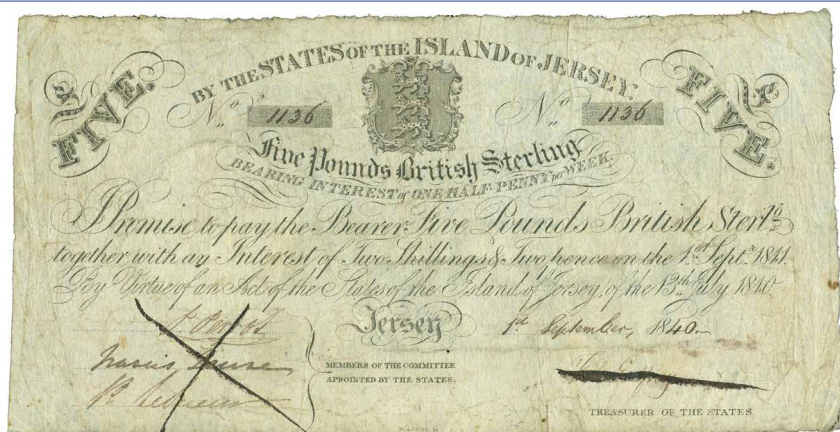 BY THE STATES OF THE ISLAND OF JERSEY.
£5 FIVE. £5 FIVE.
No. 1136 No. 1136
Five Pounds British Sterling
BEARING INTEREST of ONE HALF-PENNY per WEEK.
I Promise to pay the Bearer Five Pounds British Sterlg.
together with an Interest of Two Shillings & Two pence on the 1st Septr. 1841.
By Virtue of an Act of the States of the Island of Jersey, of the 13th July 1840.
Jersey 1st September, 1840.
MEMBERS OF THE COMMITTEE
APPOINTED BY THE STATES.
TREASURER OF THE STATES.